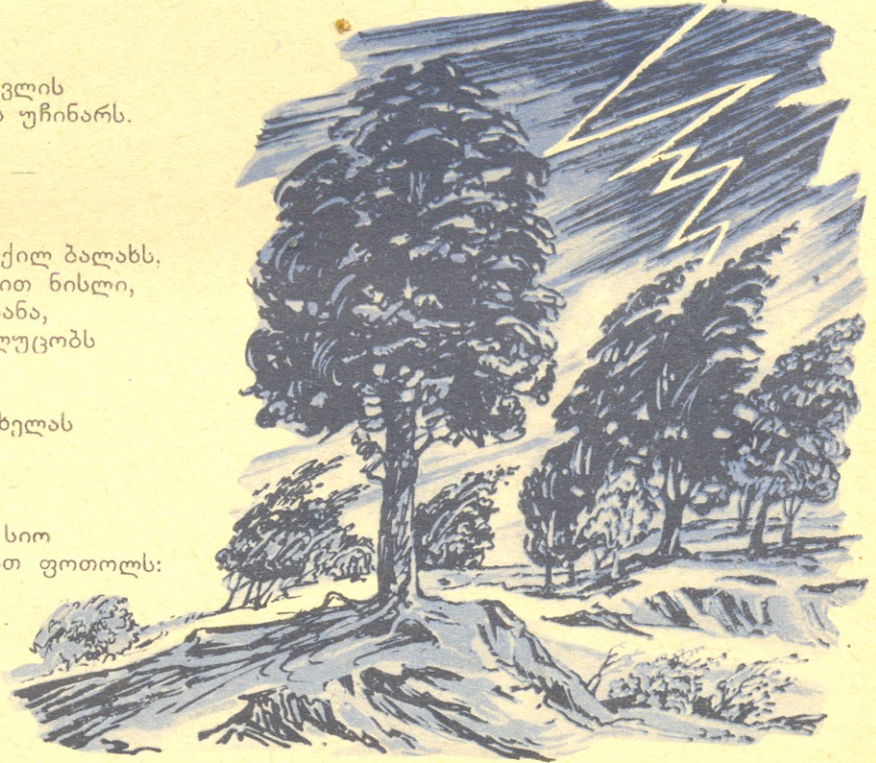 ვლის
უჩინარს.
ქილ ბალახს,
ით ნისლი,
ანა,
ლუცობს
ხელას
სიო
თ ფოთოლს: